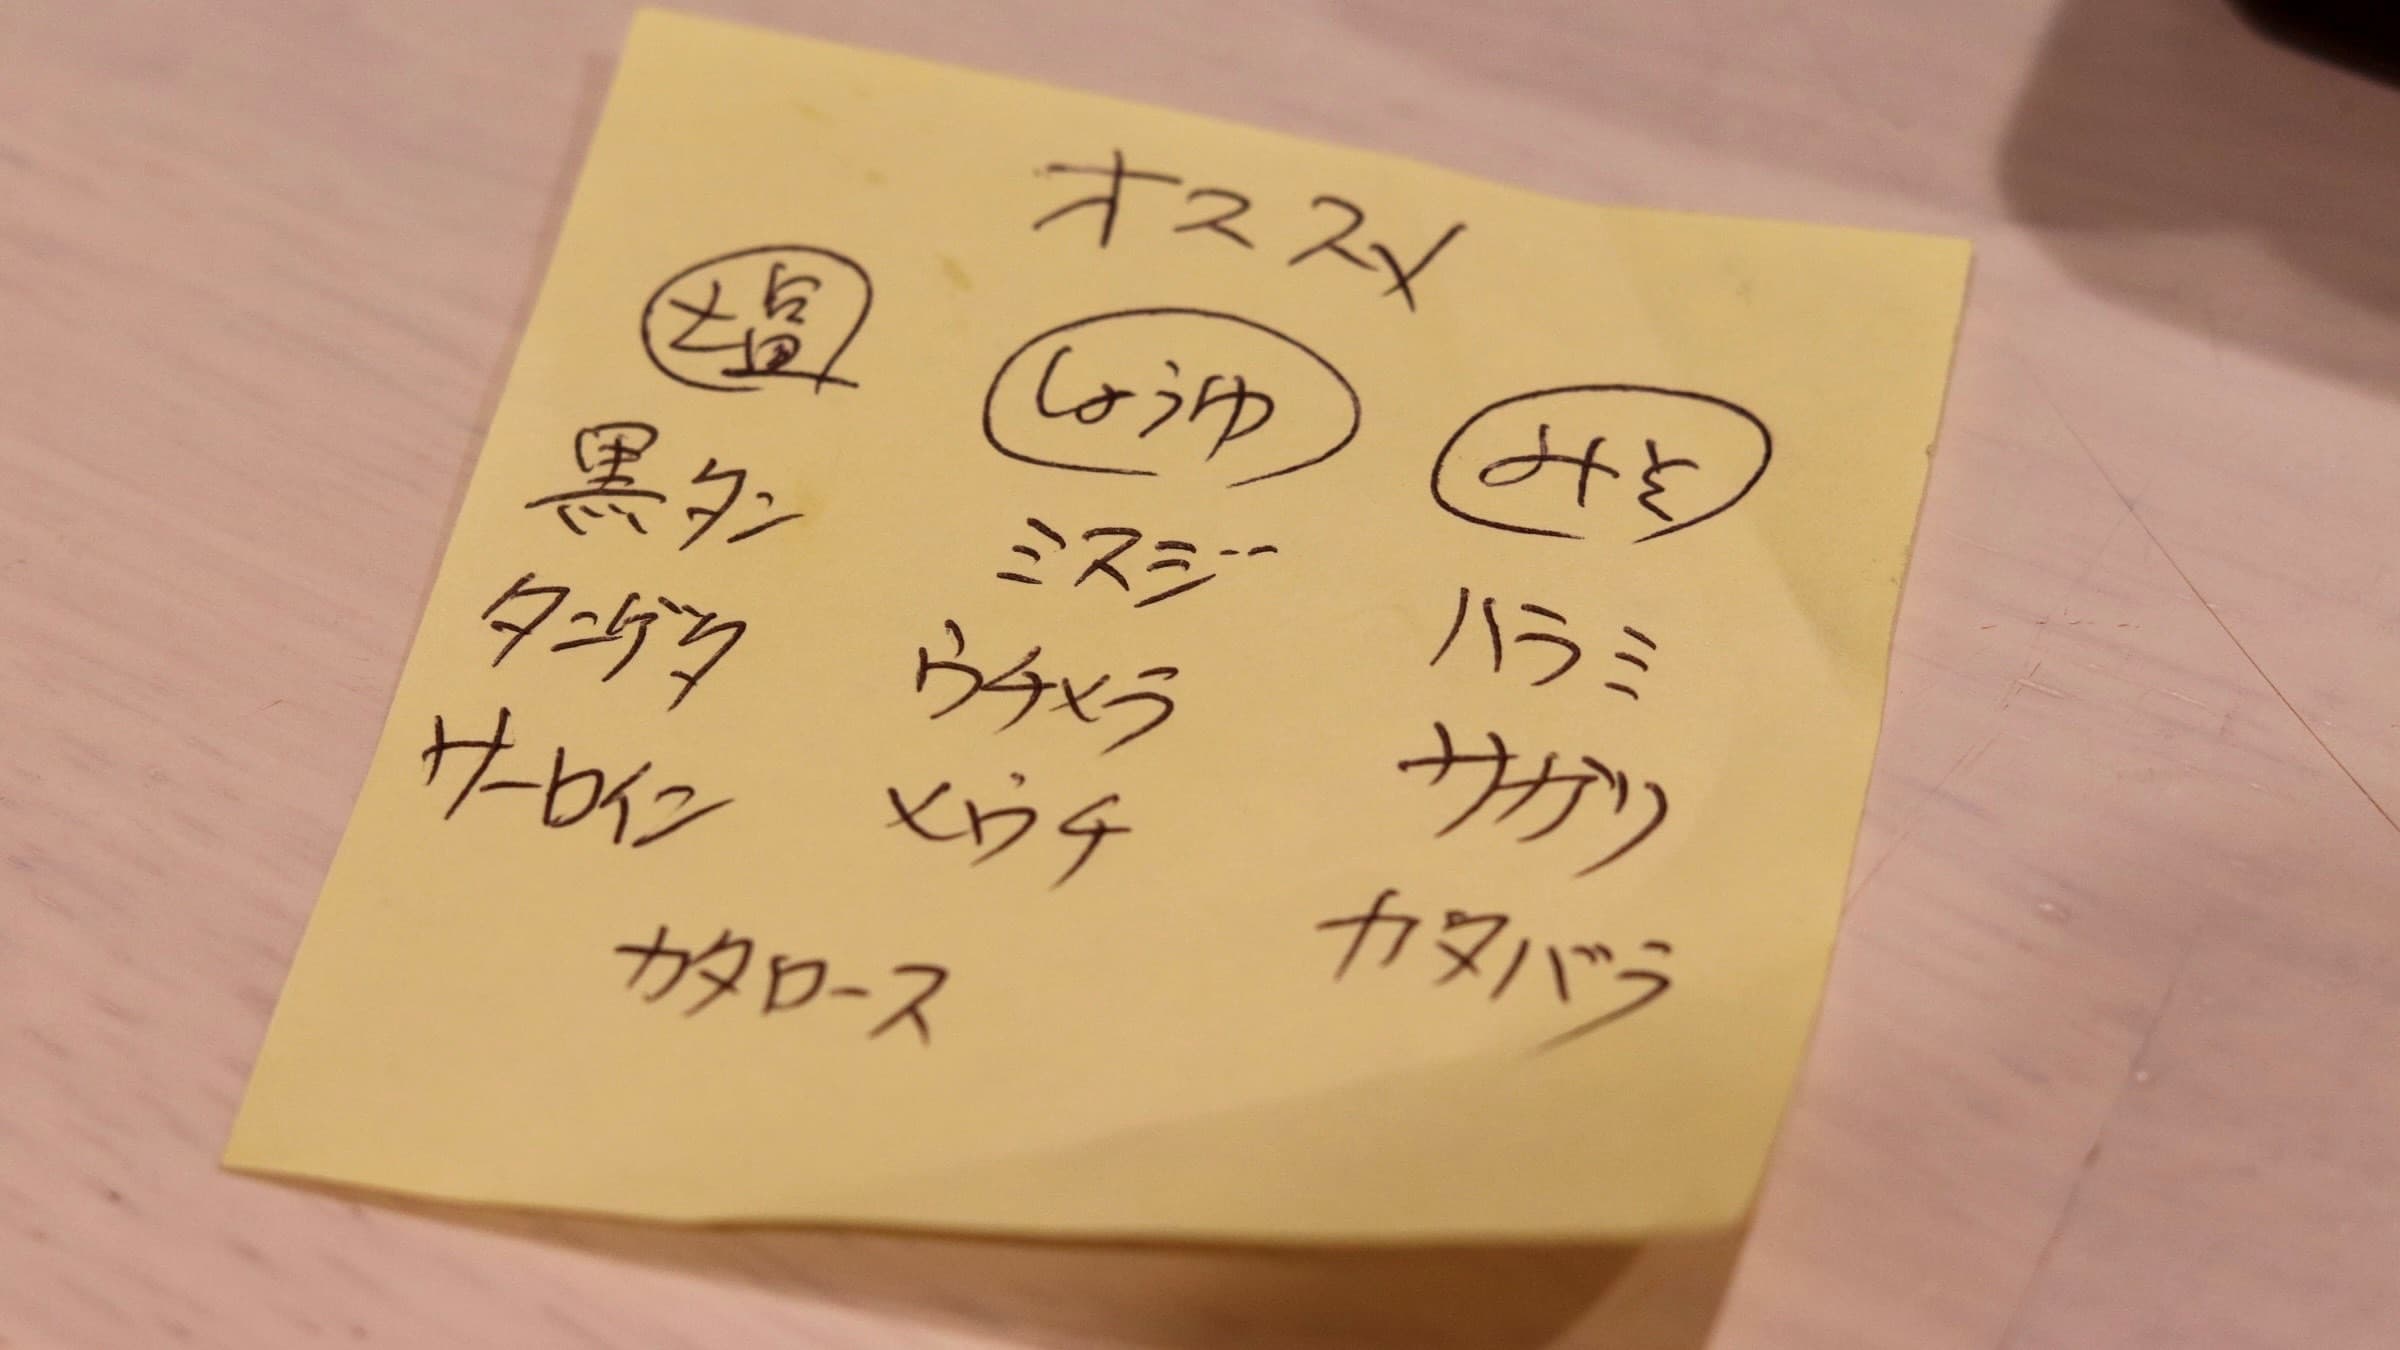 オススメ
塩
黒タン
タンゲタ
サーロイン
カタロース
しょうゆ
ミスジ
ウチヒラ
ヒウチ
みそ
ハラミ
サガリ
カタバラ